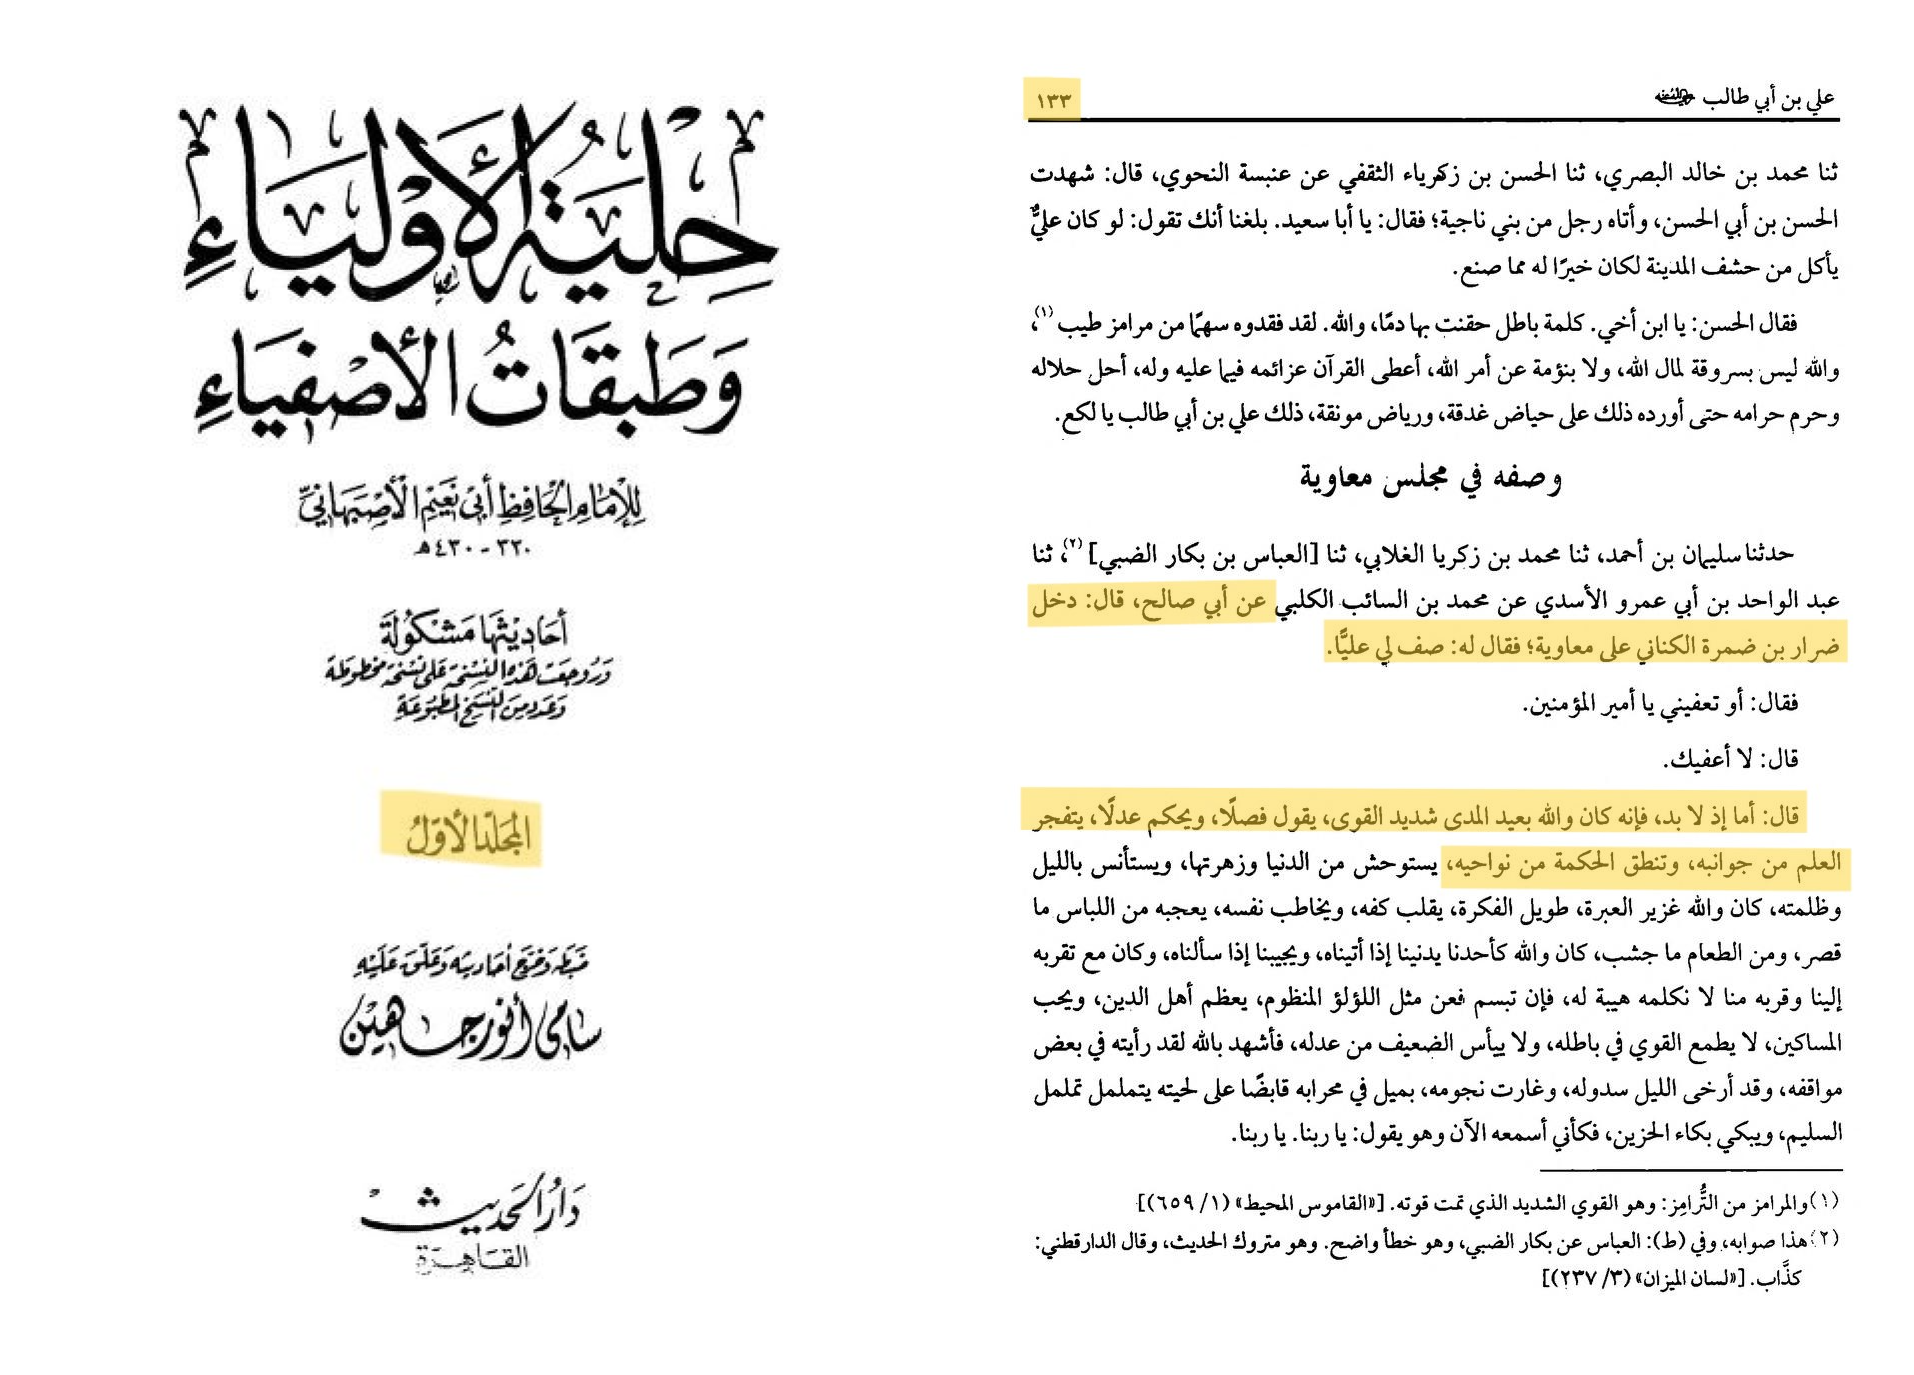 حِليَةُ الأَوْليَاءِ
وَطَبَقَاتُ الأَصْفِيَاءِ
لِلإِمَامِ الحَافِظِ أَبِي نَعَيْمِ الأَصْبَهَانِيِّ
٣٣٠ - ٤٣٠ هـ
أحَادِيثُهَا مَشْكُولَة
وَرُوجِعَت هَذِهِ النُسْخَة عَلَى نُسْخَة مَخْطُوطَة
وَعَدد مِنَ النُّسَخِ المَطْبُوعَةِ
المجَلّد الأوّلُ
ضَبَطَهُ وَخَرّجَ أحَادِيثَه وَعَلّقَ عَلَيْهِ
سَامى أنور جَاهين
دَارُ الحَديث
القَاهِرَة
علي بن أبي طالب رضي الله عنه ١٣٣
ثنا محمد بن خالد البصري، ثنا الحسن بن زكرياء الثقفي عن عنبسة النحوي، قال: شهدت
الحسن بن أبي الحسن، وأتاه رجل من بني ناجية؛ فقال: يا أبا سعيد. بلغنا أنك تقول: لو كان عليٌّ
يأكل من حشف المدينة لكان خيرًا له مما صنع.
فقال الحسن: يا ابن أخي. كلمة باطل حقنت بها دمًا، والله. لقد فقدوه سهمًا من مرامز طيب (١)،
والله ليس بسروقة لمال الله، ولا بنؤمة عن أمر الله، أعطى القرآن عزائمه فيما عليه وله، أحل حلاله
وحرم حرامه حتى أورده ذلك على حياض غدقة، ورياض مونقة، ذلك علي بن أبي طالب يا لكع.
وصفه في مجلس معاوية
حدثنا سليمان بن أحمد، ثنا محمد بن زكريا الغلابي، ثنا [العباس بن بكار الضبي] (٢)، ثنا
عبد الواحد بن أبي عمرو الأسدي عن محمد بن السائب الكلبي عن أبي صالح، قال: دخل
ضرار بن ضمرة الكناني على معاوية؛ فقال له: صف لي عليًّا.
فقال: أو تعفيني يا أمير المؤمنين.
قال: لا أعفيك.
قال: أما إذ لا بد، فإنه كان والله بعيد المدى شديد القوى، يقول فصلًا، ويحكم عدلًا، يتفجر
العلم من جوانبه، وتنطق الحكمة من نواحيه، يستوحش من الدنيا وزهرتها، ويستأنس بالليل
وظلمته، كان والله غزير العبرة، طويل الفكرة، يقلب كفه، ويخاطب نفسه، يعجبه من اللباس ما
قصر، ومن الطعام ما جشب، كان والله كأحدنا يدنينا إذا أتيناه، ويجيبنا إذا سألناه، وكان مع تقربه
إلينا وقربه منا لا نكلمه هيبة له، فإن تبسم فعن مثل اللؤلؤ المنظوم، يعظم أهل الدين، ويحب
المساكين، لا يطمع القوي في باطله، ولا ييأس الضعيف من عدله، فأشهد بالله لقد رأيته في بعض
مواقفه، وقد أرخى الليل سدوله، وغارت نجومه، بميل في محرابه قابضًا على لحيته يتململ تململ
السليم، ويبكي بكاء الحزين، فكأني أسمعه الآن وهو يقول: يا ربنا. يا ربنا.
(١) والمرامز من التُّرامِز: وهو القوي الشديد الذي تمت قوته. [«القاموس المحيط» (١/ ٦٥٩)]
(٢) هذا صوابه، وفي (ط): العباس عن بكار الضبي، وهو خطأ واضح. وهو متروك الحديث، وقال الدارقطني:
كذَّاب. [«لسان الميزان» (٣/ ٢٣٧)]